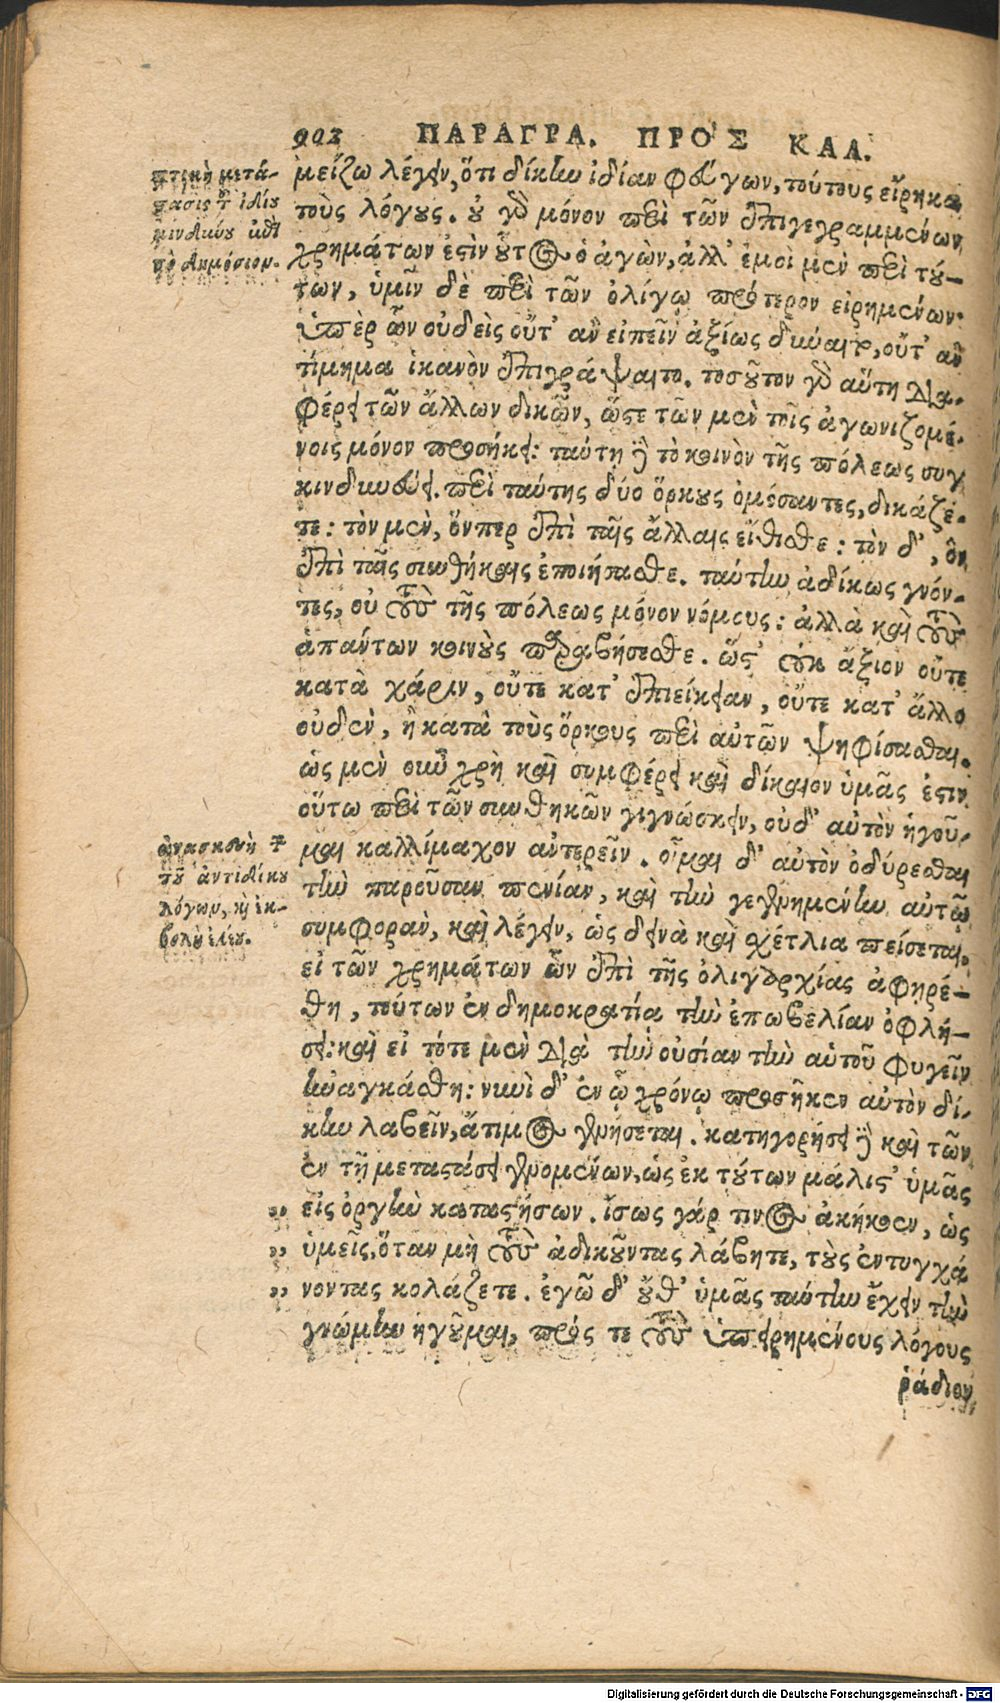 902 ΠΑΡΑΓΡΑ. ΠΡΟΣ ΚΑΛ.
μείζω λέγειν, ὅτι δίκην ἰδίαν φεύγων, τούτους εἴρηκα
τοὺς λόγους. οὐ γὰρ μόνον περὶ τῶν ἐπιγεγραμμένων
χρημάτων ἐστὶν οὗτος ὁ ἀγὼν, ἀλλ' ἐμοὶ μὲν περὶ τού-
των, ὑμῖν δὲ περὶ τῶν ὀλίγῳ πρότερον εἰρημένων.
ὑπὲρ ὧν οὐδεὶς οὔτ' ἂν εἰπεῖν ἀξίως δύναιτο, οὔτ' ἂν
τίμημα ἱκανὸν ἐπιγράψαιτο. τοσοῦτον γὰρ αὕτη δια-
φέρει τῶν ἄλλων δικῶν, ὥστε τῶν μὲν τοῖς ἀγωνιζομέ-
νοις μόνον προσήκει: ταύτῃ δὲ τὸ κοινὸν τῆς πόλεως συγ
κινδυνεύει. περὶ ταύτης δύο ὅρκους ὀμόσαντες, δικάζε-
τε: τὸν μὲν, ὅνπερ ἐπὶ ταῖς ἄλλαις εἴθισθε: τὸν δ', ὃν
ἐπὶ ταῖς συνθήκαις ἐποιήσασθε. ταύτην ἀδίκως γνόν-
τες, οὐ τοὺς τῆς πόλεως μόνον νόμους: ἀλλὰ καὶ τοὺς
ἁπάντων κοινοὺς παραβήσεσθε. ὥστ' οὐκ ἄξιον οὔτε
κατὰ χάριν, οὔτε κατ' ἐπιείκειαν, οὔτε κατ' ἄλλο
οὐδὲν, ἢ κατὰ τοὺς ὅρκους περὶ αὐτῶν ψηφίσασθαι.
ὡς μὲν οὖν χρὴ καὶ συμφέρει καὶ δίκαιον ὑμᾶς ἐστιν
οὕτω περὶ τῶν συνθηκῶν γιγνώσκειν, οὐδ' αὐτὸν ἡγοῦ-
μαι καλλίμαχον ἀντερεῖν. οἶμαι δ' αὐτὸν ὀδύρεσθαι
τὴν παροῦσαν πενίαν, καὶ τὴν γεγενημένην αὐτῷ
συμφορὰν, καὶ λέγειν, ὡς δεινὰ καὶ σχέτλια πείσεται,
εἰ τῶν χρημάτων ὧν ἐπὶ τῆς ὀλιγαρχίας ἀφηρέ-
θη, τούτων ἐν δημοκρατίᾳ τὴν ἐπωβελίαν ὀφλή-
σει: καὶ εἰ τότε μὲν διὰ τὴν οὐσίαν τὴν αὑτοῦ φυγεῖν
ἠναγκάσθη: νυνὶ δ' ἐν ᾧ χρόνῳ προσῆκεν αὐτὸν δί-
κην λαβεῖν, ἄτιμος γενήσεται. κατηγορήσει δὲ καὶ τῶν
ἐν τῇ μεταστάσει γενομένων, ὡς ἐκ τούτων μάλιστ' ὑμᾶς
,, εἰς ὀργὴν καταστήσων. ἴσως γάρ τινος ἀκήκοεν, ὡς
,, ὑμεῖς, ὅταν μὴ τοὺς ἀδικοῦντας λάβητε, τοὺς ἐντυγχά
,, νοντας κολάζετε. ἐγὼ δ' οὔθ' ὑμᾶς ταύτην ἔχειν τὴν
γνώμην ἡγοῦμαι, πρός τε τοὺς ὑπειρημένους λόγους
ῥᾴδιον
πτικὴ μετά-
στασις τοῦ ἰδίου
κινδύνου ἐπὶ
τὸ δημόσιον.
ἀνασκευὴ τῶν
τοῦ ἀντιδίκου
λόγων, καὶ ἐκ-
βολὴ ἐλέου.
Digitalisierung gefördert durch die Deutsche Forschungsgemeinschaft - DFG